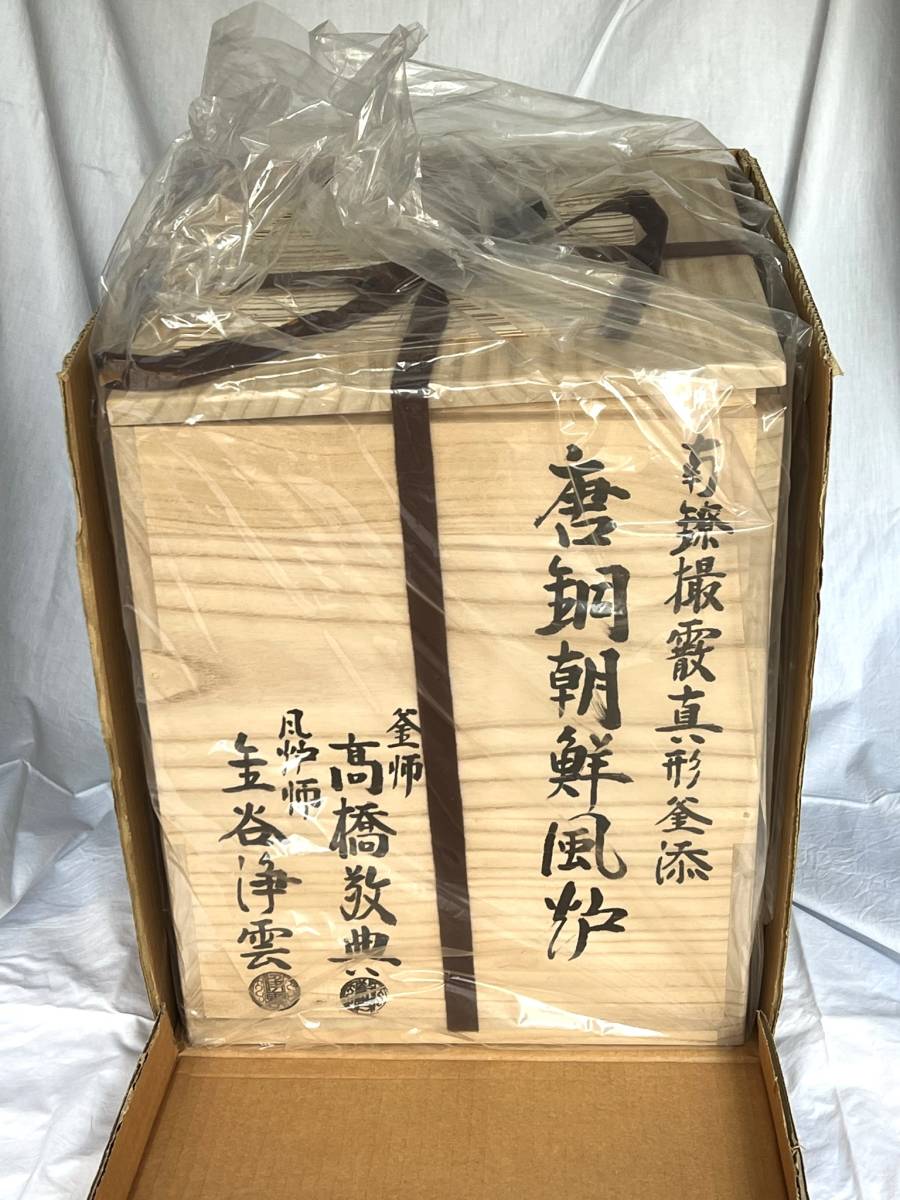 南鐐撮霰真形釜添
唐銅朝鮮風炉
釜师
高橋敬典
风炉师
金谷浄雲